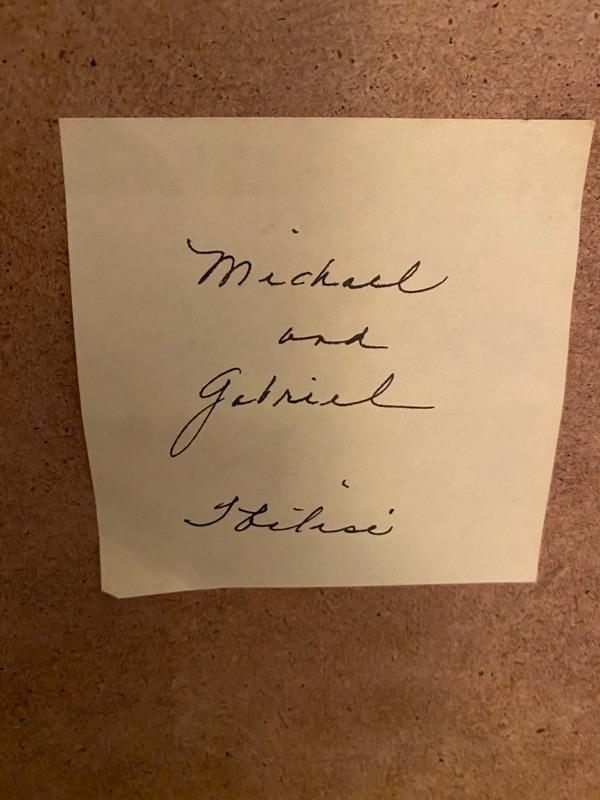 Michael
and
Gabriel
Tbilisi